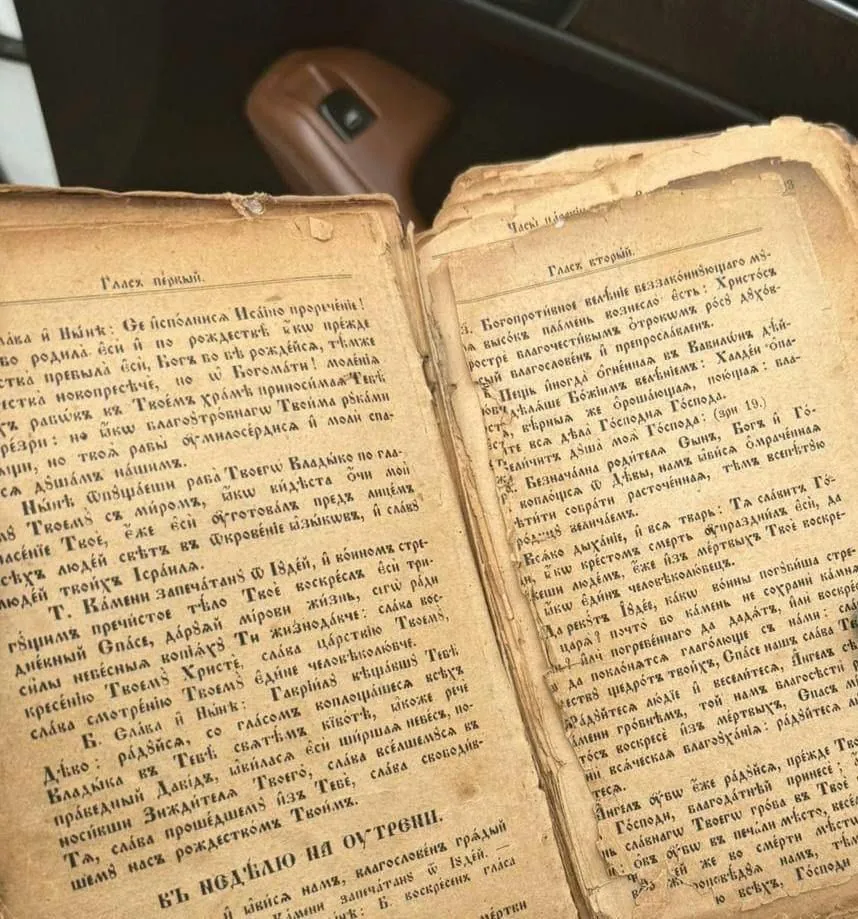 Гла́съ пе́рвый.
сла́ва и҆ Ны́нѣ: Се и҆спо́лнисѧ И҆са́їино проречє́нїе!
во родила̀ є҆сѝ и҆ по рождествѣ̀ ꙗ҆́кѡ пре́жде
превыла̀ є҆сѝ, Бо́гъ бо бѣ̀ рожде́йсѧ, тѣ́мже
є҆стества̀ новопресѣчѐ, но ѽ Богома́ти! моле́нїѧ
рабѡ́въ въ Твое́мъ хра́мѣ приноси̑маѧ Тебѣ̀
пре́зри: но ꙗ҆́кѡ благоꙋтро́бнаго Твои́ма рꙋка́ми
но твоѧ̑ рабы̑ ᲂу҆милосе́рдисѧ и҆ молѝ спа-
дꙋша́мъ на́шымъ.
Ны́нѣ ѿпꙋща́еши раба̀ Твоего̀ Влады́ко по гла-
Твоемꙋ̀ съ ми́ромъ, ꙗ҆́кѡ ви́дѣста ѻ҆́чи моѝ
спасе́нїе Твоѐ, є҆́же є҆сѝ ᲂу҆гото́валъ предъ лице́мъ
всѣ́хъ люде́й свѣ́тъ въ ѿкрове́нїе ꙗ҆зы́кѡвъ, и҆ сла́вꙋ
люде́й твои́хъ І҆сра́илѧ.
Т. Ка́мени запеча́танꙋ ѿ І҆ꙋде́й, и҆ во́инѡмъ стре-
гꙋ́щымъ пречи́стое тѣ́ло Твоѐ воскре́слъ є҆сѝ три-
дне́вный Спа́се, да́рꙋѧй мі́рови жи́знь, сегѡ̀ ра́ди
си̑лы небє́сныѧ вопїѧ́хꙋ Тѝ жизнода́вче: сла́ва вос-
кресе́нїю Твоемꙋ̀ Христѐ, сла́ва ца́рствїю Твоемꙋ̀,
сла́ва смотре́нїю Твоемꙋ̀ є҆ди́не человѣколю́бче.
Б. Сла́ва и҆ Ны́нѣ: Гаврїи́лꙋ вѣща́вшꙋ Тебѣ̀
Дѣ́во: ра́дꙋйсѧ, со гла́сомъ воплоща́шесѧ всѣ́хъ
Влады́ка въ Тебѣ̀ свѧтѣ́мъ кївѡ́тѣ, ꙗ҆́коже речѐ
пра́ведный Даві́дъ, ꙗ҆ви́ласѧ є҆сѝ ши́ршаѧ небе́съ, по-
носи́вши Зижди́телѧ Твоего̀, сла́ва все́лшемꙋсѧ въ
Тѧ̀, сла́ва проше́дшемꙋ и҆зъ Тебє̀, сла́ва свободи́в-
шемꙋ на́съ рождество́мъ Твои́мъ.
ВЪ НЕДѢ́ЛЮ НА ОУ́ТРЕНИ.
и҆ ꙗ҆ви́сѧ на́мъ, благослове́нъ грѧды́й
Ка́мени запеча́танꙋ ѿ І҆ꙋде́й. —
и҆ Ны́нѣ: Б. воскре́сенъ гла́са
ме́ртвы
Часы̀
Гла́съ вторы́й.
Богопроти́вное велѣ́нїе беззако́ннꙋющагѡ мꙋ-
высо́къ пла́мень вознесло̀ є҆́сть: Христо́съ
прострѐ благочести̑вымъ ѻ҆трокѡ́мъ ро́сꙋ дꙋхо́в-
сы́й благослове́нъ и҆ препросла́вленъ.
Пе́щь и҆ногда̀ ѻ҆́гненнаѧ въ Вавилѡ́нѣ дѣ̑й-
дѣлѧ́ше Бо́жїимъ велѣ́нїемъ: Халде́и ѡ҆па-
вѣ̑рныѧ же ѡ҆роша́ющаѧ, пою́щыѧ: бла-
всѧ̑ дѣла̀ Госпо́днѧ Го́спода.
вели́читъ дꙋша̀ моѧ̀ Го́спода: (зри 19.)
Безнача́льна роди́телѧ Сы́нъ, Бо́гъ и҆ Го-
воплоща́сѧ ѿ Дѣ́вы, на́мъ ꙗ҆ви́сѧ ѡ҆мраче́ннаѧ
собра́ти расточє́ннаѧ, тѣ́мъ всепѣ́тꙋю
велича́емъ.
Всѧ́ко дыха́нїе, и҆ всѧ̀ тва́рь: Тѧ̀ сла́витъ Го-
ꙗ҆́кѡ кресто́мъ сме́рть ᲂу҆праздни́лъ є҆сѝ, да
лю́демъ, є҆́же и҆зъ ме́ртвыхъ Твоѐ воскре-
ꙗ҆́кѡ є҆ди́нъ человѣколю́бецъ.
Да реку́тъ І҆ꙋде́е, ка́кѡ во́ини погꙋби́ша стре-
царѧ̀? почто̀ бо ка́мень не сохранѝ ка́мнѧ
и҆лѝ погребе́ннаго да дадѧ́тъ, и҆лѝ воскре́с
да покло́нѧтсѧ глаго́люще съ на́ми: сла́
щедро́тъ твои́хъ, Спа́се на́шъ сла́ва Те
Ра́дꙋйтесѧ лю́дїе и҆ весели́тесѧ, А҆́нгелъ сѣ
ка́мени гро́внѣмъ, то́й на́мъ благовѣстѝ р
то́съ воскре́се и҆зъ ме́ртвыхъ, Спа́съ мі
всѧ́ческаѧ благоꙋха́нїѧ: ра́дꙋйтесѧ лю
тесѧ.
А҆́нгелъ ᲂу҆́бѡ є҆́же ра́дꙋйсѧ, пре́жде Тво
Го́споди, благода́тнѣй принесѐ; а҆́
сла́внагѡ Твоегѡ̀ гро́ва въ Твоѐ
ѻ҆́въ ᲂу҆́бѡ въ печа́ли мѣ́сто, весе́
же во сме́рти мѣ́сто
проповѣ́дꙋѧ на́мъ, тѣ́м
всѣ́хъ, Го́споди